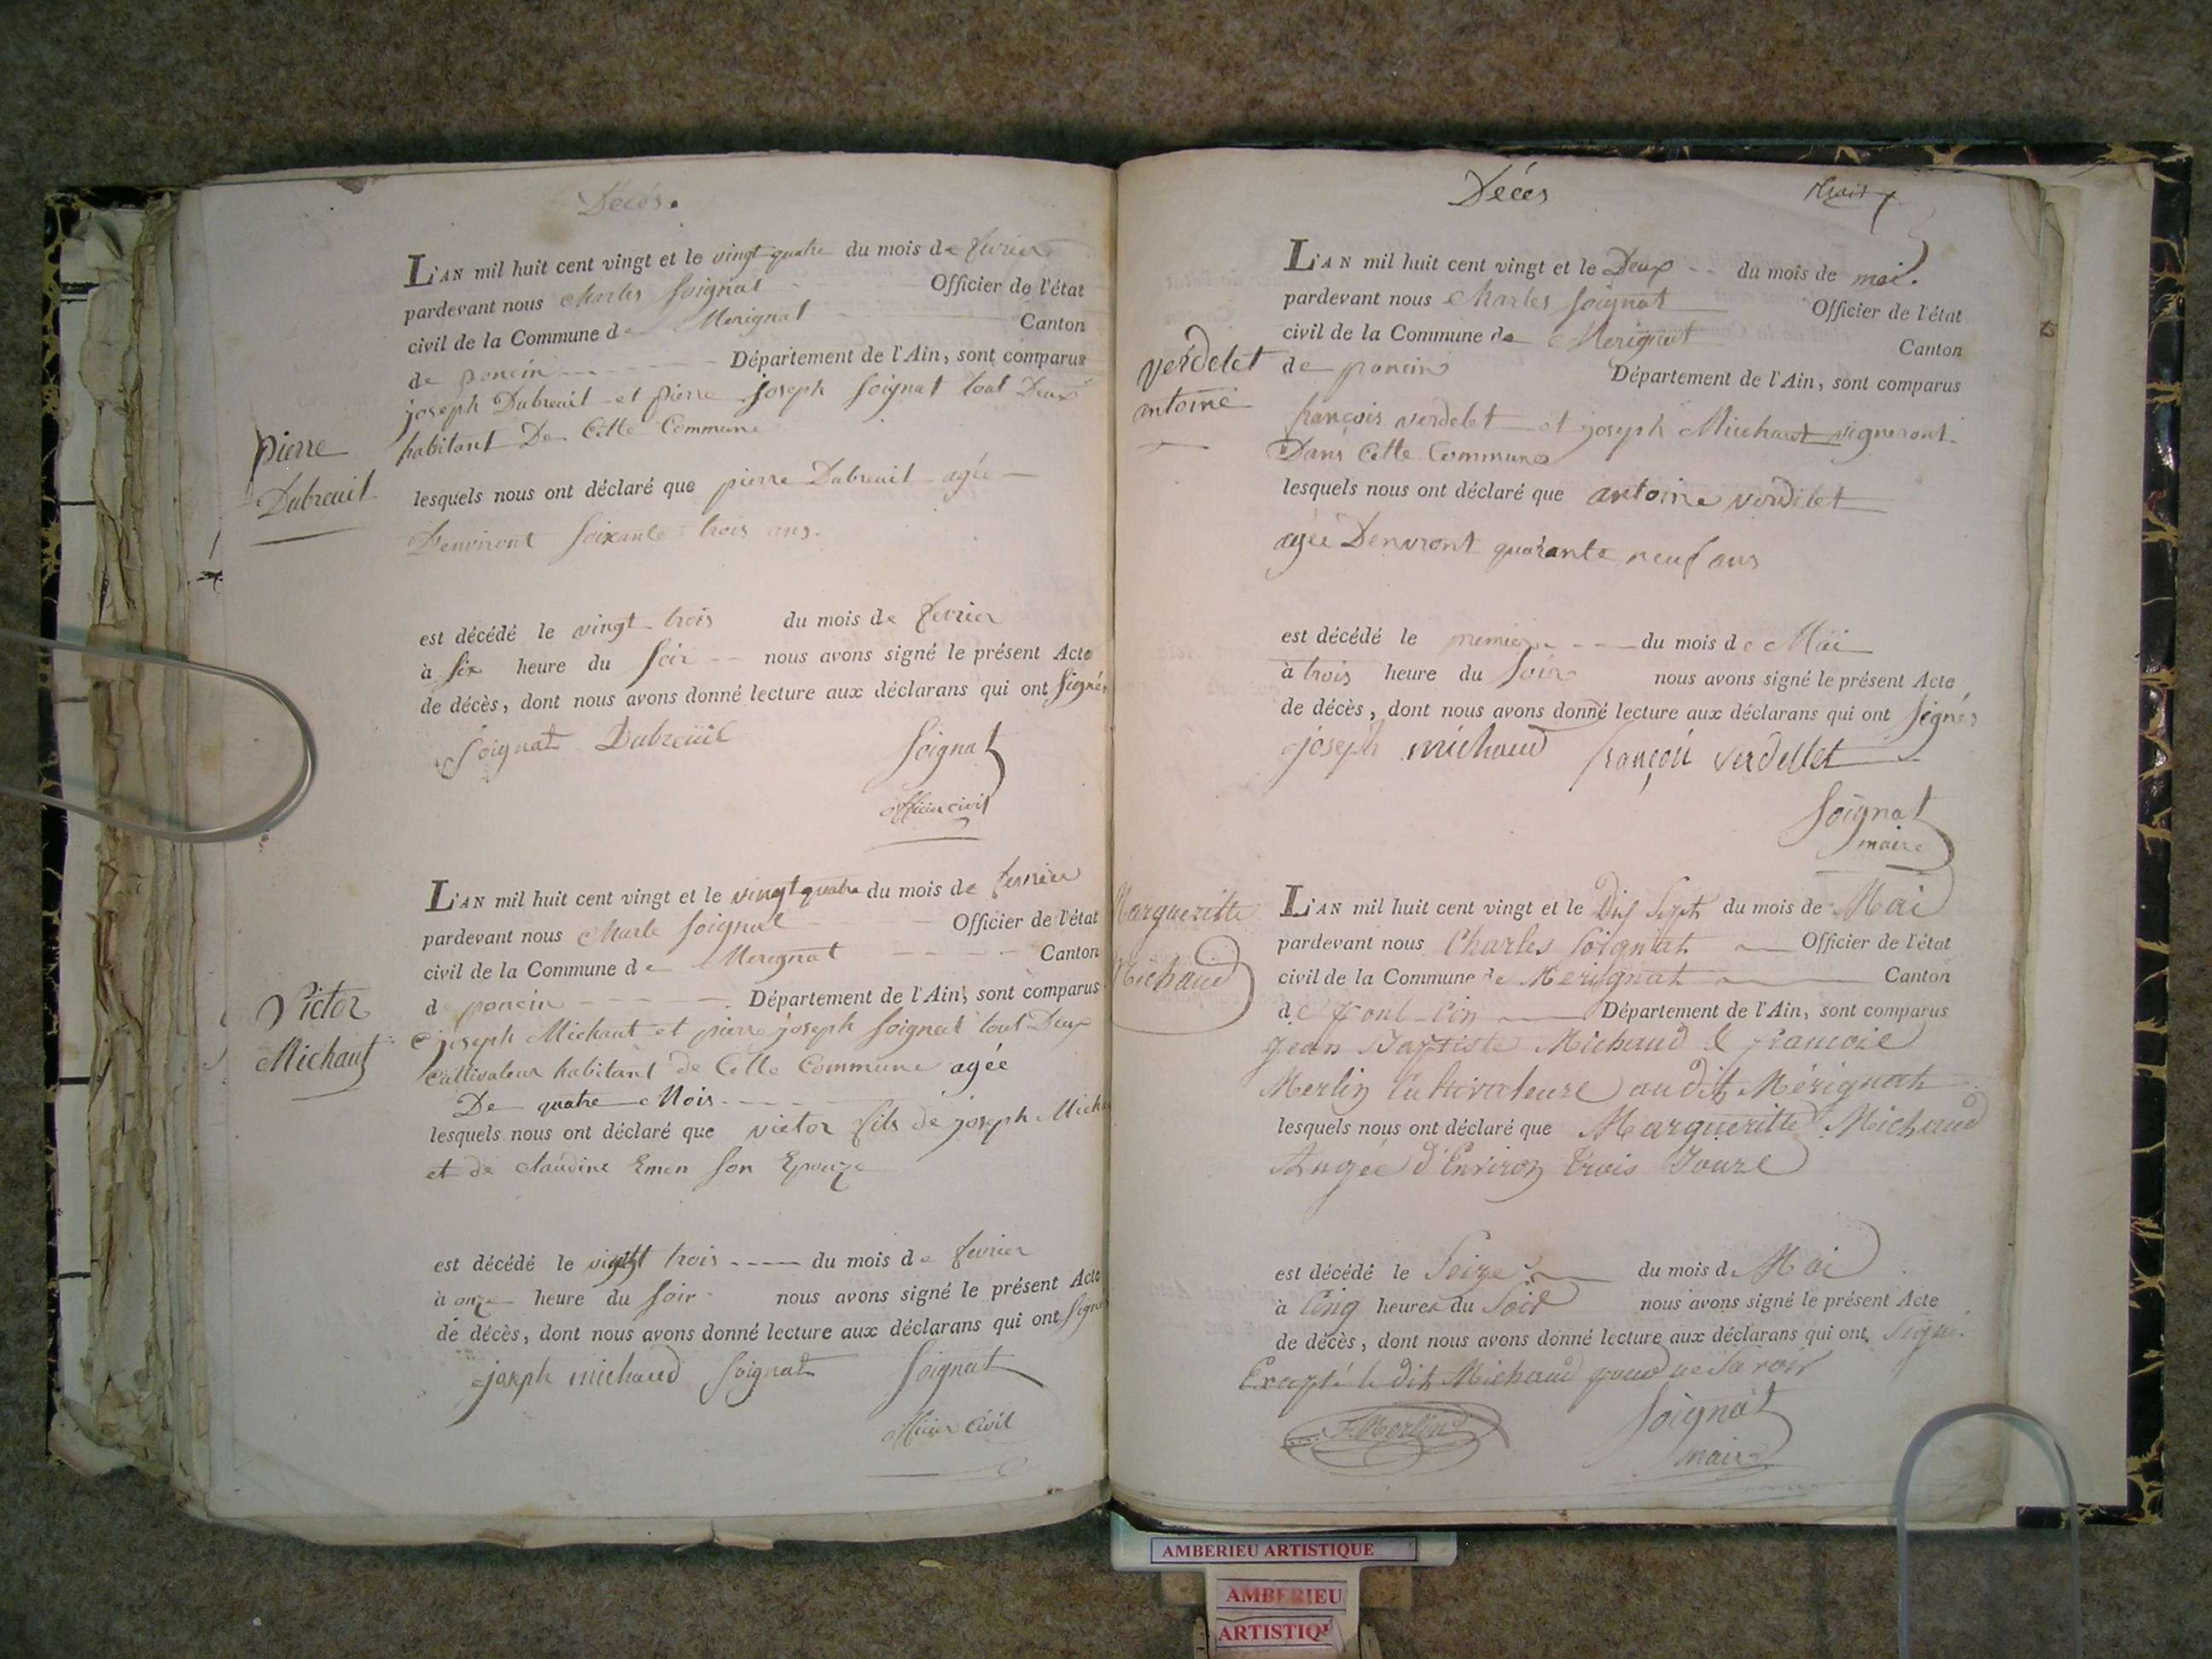 Décés.
L'AN mil huit cent vingt et le vingt quatre du mois de fevrier
pardevant nous Charles Soignat Officier de l'état
civil de la Commune de Merignat Canton
de poncin Département de l'Ain, sont comparus
joseph Dubreuil et pierre joseph Soignat tout Deux
habitant De Cette Commune
pierre
Dubreuil
lesquels nous ont déclaré que pierre Dubreuil agée
D'environt Soixante trois ans.
est décédé le vingt trois du mois de fevrier
à Six heure du Soir nous avons signé le présent Acte
de décès, dont nous avons donné lecture aux déclarans qui ont Signés
Soignat Dubreüil Soignat
officier civil
L'AN mil huit cent vingt et le vingt quatre du mois de fevrier
pardevant nous Charle Soignat Officier de l'état
civil de la Commune de Merignat Canton
de poncin Département de l'Ain, sont comparus
Victor
Michaut
joseph Michaut et pierre joseph Soignat tout Deux
Cultivateur habitant de Cette Commune agée
De quatre Mois
lesquels nous ont déclaré que victor fils de joseph
et de claudine Emen Son Epouze
est décédé le vingt trois du mois de fevrier
à onze heure du Soir nous avons signé le présent Acte
de décès, dont nous avons donné lecture aux déclarans qui ont Signés
joseph michaud Soignat Soignat
officier Civil
Décés
L'AN mil huit cent vingt et le Deux du mois de mai.
pardevant nous Charles Soignat Officier de l'état
civil de la Commune de Merignat Canton
verdelet
antoine
de poncin Département de l'Ain, sont comparus
françois verdelet et joseph Michaut vigneront
Dans Cette Commune
lesquels nous ont déclaré que antoine verdelet
agée Denviront quarante neuf ans
est décédé le premier du mois de Mai
à trois heure du Soir nous avons signé le présent Acte
de décès, dont nous avons donné lecture aux déclarans qui ont Signés
joseph michaud françoii verdellet
Soignat
maire
Margueritte
Michaud
L'AN mil huit cent vingt et le Dix Sept du mois de Mai
pardevant nous Charles Soignat Officier de l'état
civil de la Commune de Merignat Canton
de Département de l'Ain, sont comparus
Jean Baptiste Michaud & francoise
Merlin Cultivateure au dit Mérignat
lesquels nous ont déclaré que Margueritte Michaud
d'Environ trois Jours
est décédé le Seize du mois de Mai
à Cinq heures du Soir nous avons signé le présent Acte
de décès, dont nous avons donné lecture aux déclarans qui ont Signé
Excepté le dit Michaud pour ne Savoir
F. Merlin Soignat
maire
AMBERIEU ARTISTIQUE
AMBERIEU
ARTISTIQU